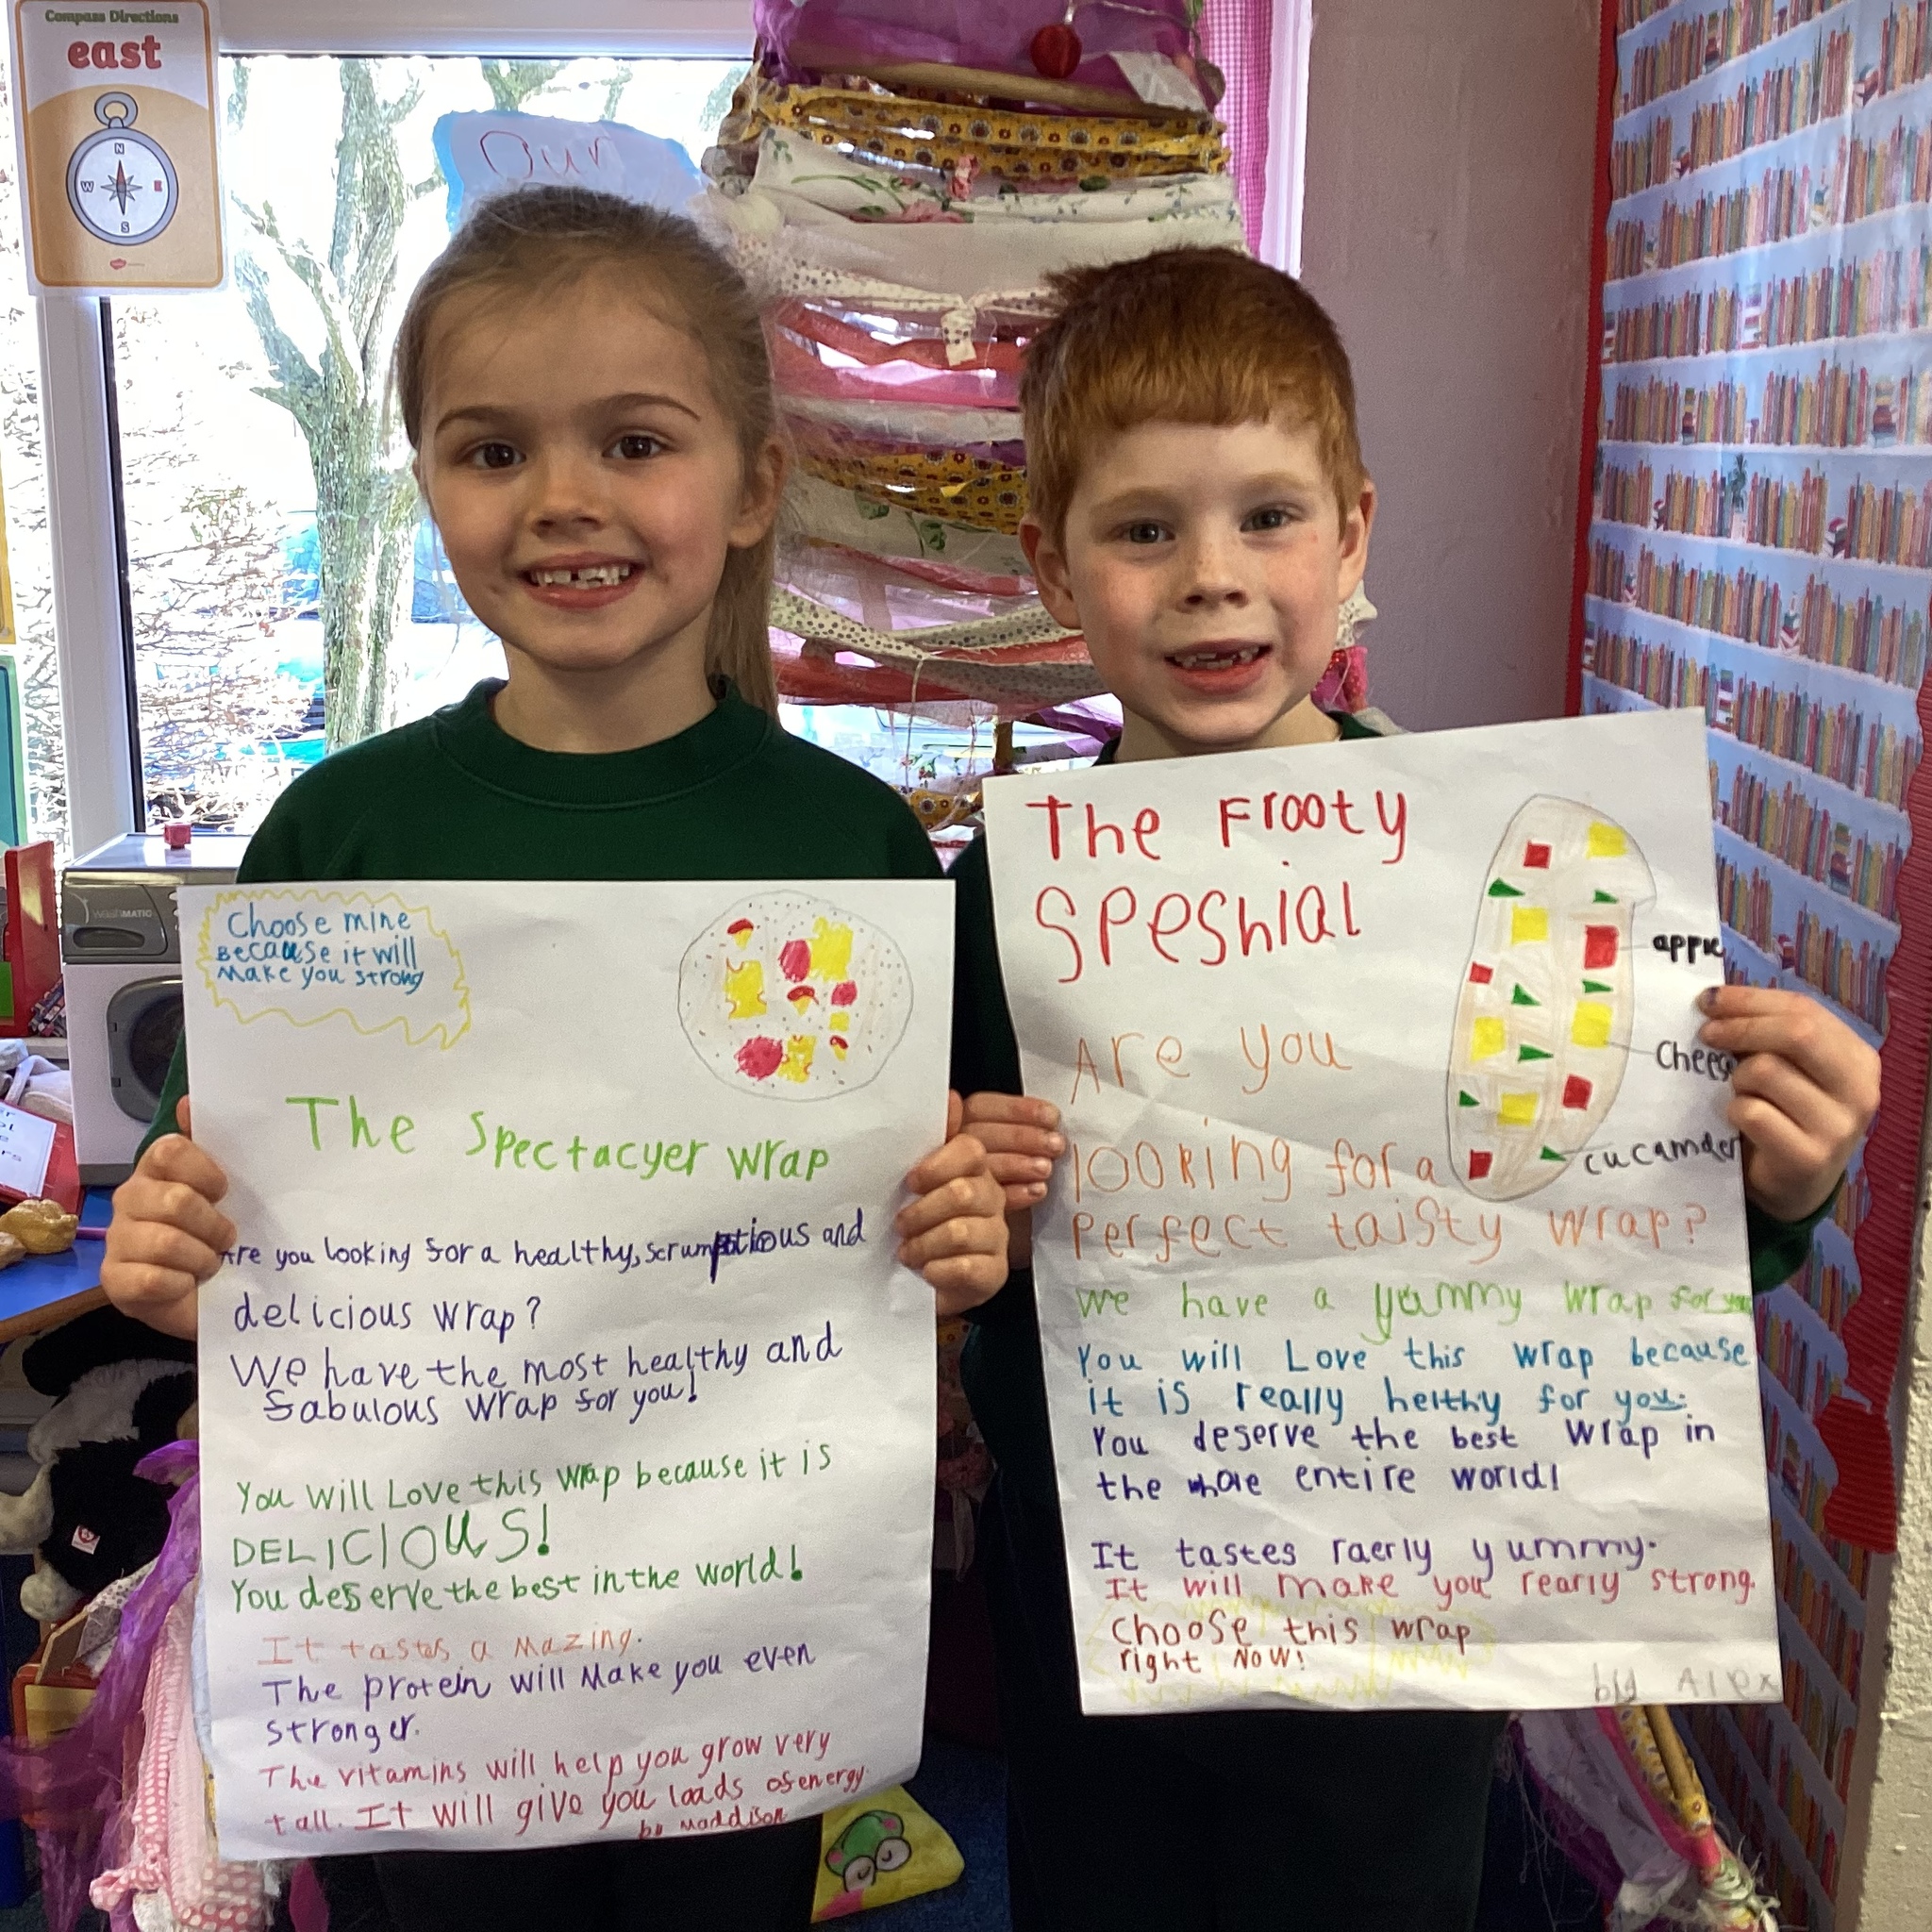 Compass Directions
east
N
W
E
S
Our
WashMATIC
Choose mine
Because it will
make you strong
The Spectacyer wrap
Are you looking for a healthy, scrumptious and
delicious wrap?
We have the most healthy and
fabulous wrap for you!
You will Love this wrap because it is
DELICIOUS!
You deserve the best in the world!
It tastes a mazing.
The protein will make you even
stronger.
The vitamins will help you grow very
tall. It will give you loads of energy
by Maddison
The Frooty
Speshial
apple
Cheese
cucamder
Are you
looking for a
perfect taisty wrap?
we have a yummy wrap for you
You will Love this wrap because
it is really helthy for you.
You deserve the best wrap in
the whole entire world!
It tastes raerly yummy.
It will make you rearly strong.
Choose this wrap
right now!
by Alex